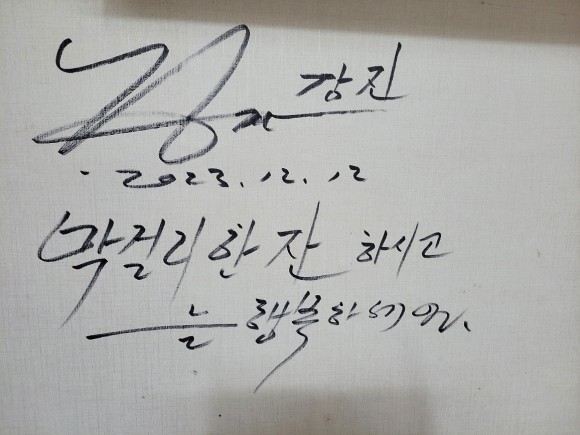 강진
2023.12.12
막걸리 한 잔 하시고
늘 행복하세요.